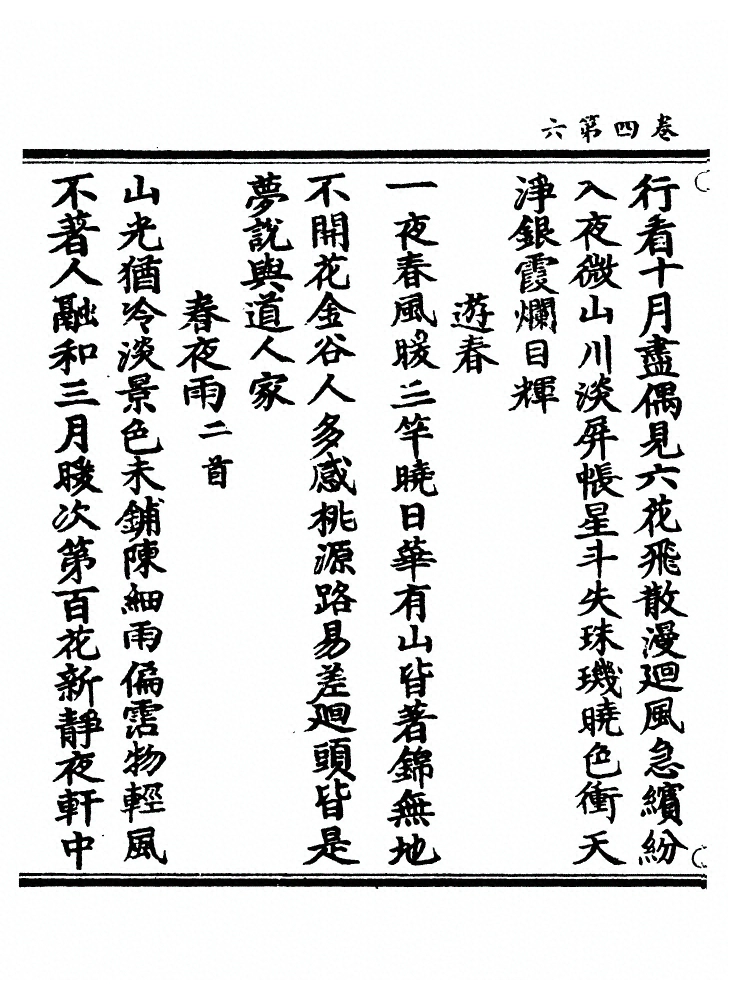 卷四第六
行看十月盡偶見六花飛散漫廻風急繽紛
入夜微山川淡屏帳星斗失珠璣曉色衝天
淨銀霞爛目輝
遊春
一夜春風暖三竿曉日華有山皆著錦無地
不開花金谷人多感桃源路易差廻頭皆是
夢說與道人家
春夜雨二首
山光猶冷淡景色未鋪陳細雨偏霑物輕風
不著人融和三月暖次第百花新靜夜軒中